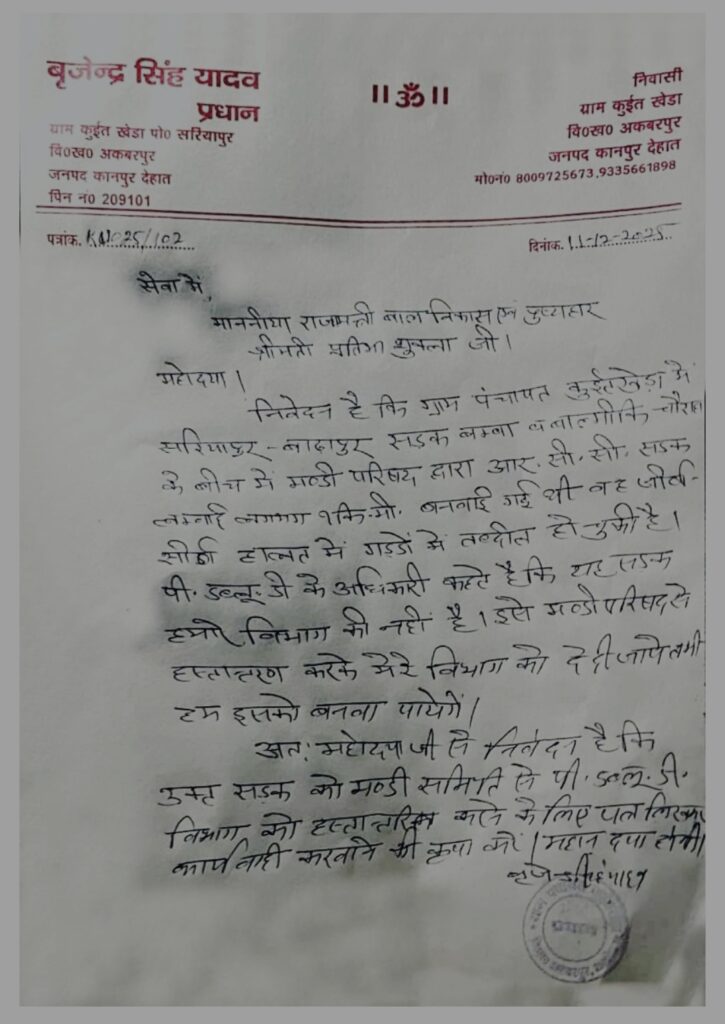 बृजेन्द्र सिंह यादव
प्रधान
ग्राम कुईत खेडा पो० सरियापुर
वि०ख० अकबरपुर
जनपद कानपुर देहात
पिन नं० 209101
॥ॐ॥
निवासी
ग्राम कुईत खेडा
वि०ख० अकबरपुर
जनपद कानपुर देहात
मो०नं० 8009725673,9335661898
पत्रांक. KN025/102
दिनांक. 11-12-2025
सेवा में,
माननीया राजमन्त्री बाल विकास एवं पुष्टाहार
श्रीमती प्रतिभा शुक्ला जी।
महोदया।
निवेदन है कि ग्राम पंचायत कुईतखेड़ा में
सरियापुर - बाढ़ापुर सड़क बम्बा व बाल्मीकि चौराहा
के बीच में मण्डी परिषद द्वारा आर.सी.सी. सडक
लम्बाई लगभग १कि.मी. बनवाई गई थी वह जीर्ण-
सीर्ण हालत में गड्डों में तब्दील हो चुकी है।
पी.डब्लू.डी के अधिकारी कहते है कि यह सड़क
हमारे विभाग की नहीं है। इसे मण्डी परिषद से
हस्तान्तरण करके मेरे विभाग को दे दी जाये तभी
हम इसको बनवा पायेगें।
अतः महोदया जी से निवेदन है कि
उक्त सड़क को मण्डी समिति से पी.डब्लू.डी.
विभाग को हस्तान्तरित करने के लिए पत्र लिखकर
कार्यवाही करवाने की कृपा करें। महान दया होगी।
बृजेन्द्र सिंह यादव
प्रधान